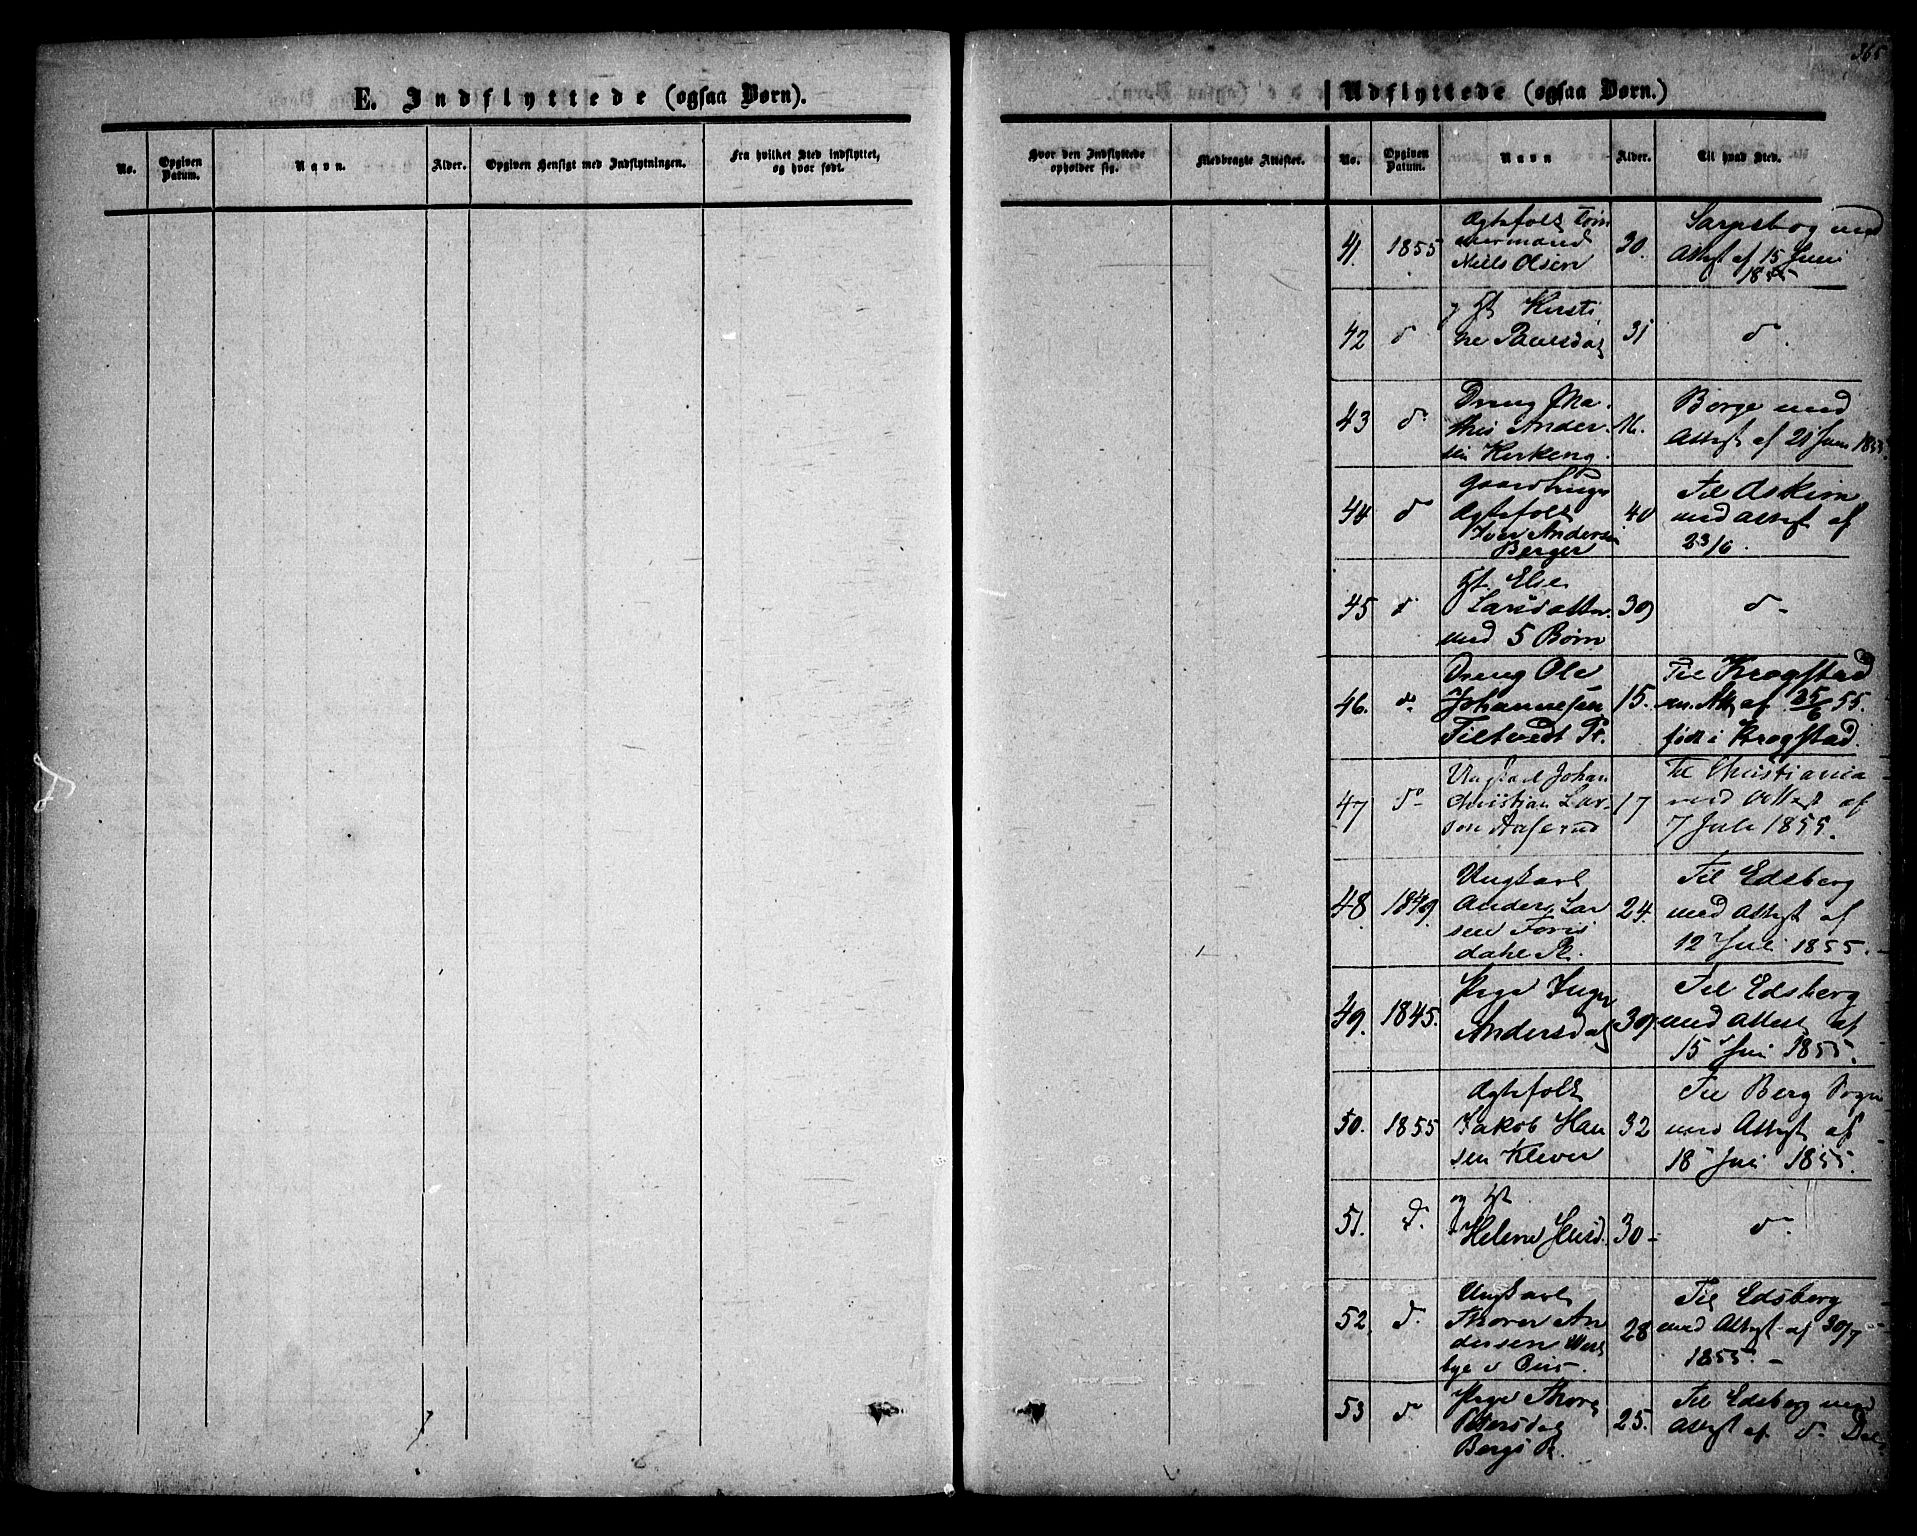 365
E. Indflyttede (ogsaa Børn).
Udflyttede (ogsaa Børn.)
No.
Opgiven Datum.
Navn.
Alder.
Opgiven Hensigt med Indflytningen.
Fra hvilket Sted indflyttet, og hvor født.
Hvor den Indflyttede opholder sig.
Medbragte Attester.
No.
Opgiven Datum.
Navn
Alder.
Til hvad Sted.
Ægtefolk Töm
mermand
41. 1855 Niels Olsen 30.
Sarpsborg med
Attest af 15 Juni
1855
gt Kirsti
42 d ne Paulsdat 31 d.
Dreng Ma
43 d. this Ander
sen Kirkeng. 16.
Børge med
Attest af 21 Juni 1855.
44 d
Ægtefolk
Iver Andersen
Berger
40
Til Askim
med Attest af
23/6.
gt. Else
45 d Larsdatter 39 d
med 5 Børn
Dreng Ole
46. d. Johannesen 15.
Tiltvedt Pr.
Til Krogstad
m. Att. af 25/6 55.
født i Krogstad.
Ungkarl Johan
47 do Christian Lar
sen Aaserud
17
Til Christiania
med Attest af
7 Juli 1855.
Ungkarl
48. 1849. Anders Lar
sen
24.
Til Edsberg
med Attest af
12 Juli 1855.
Pige Inger
49. 1845. Andersdat 39.
Til Edsberg
med Attest af
15 Juli 1855.
Ægtefolk
50. 1855 Jakob Han
sen Kløver
32
Til Berg Sogn
med Attest af
18 Juli 1855.
og gt.
51. d. Helene Jensd. 30 d
Ungkarl
52. d. Thorer An
dersen
28
Til Edsberg
med Attest af 30/7
1855.
Pige Thore
53 d Petersdat
Bergs
25.
Til Edsberg med
Attest af d.